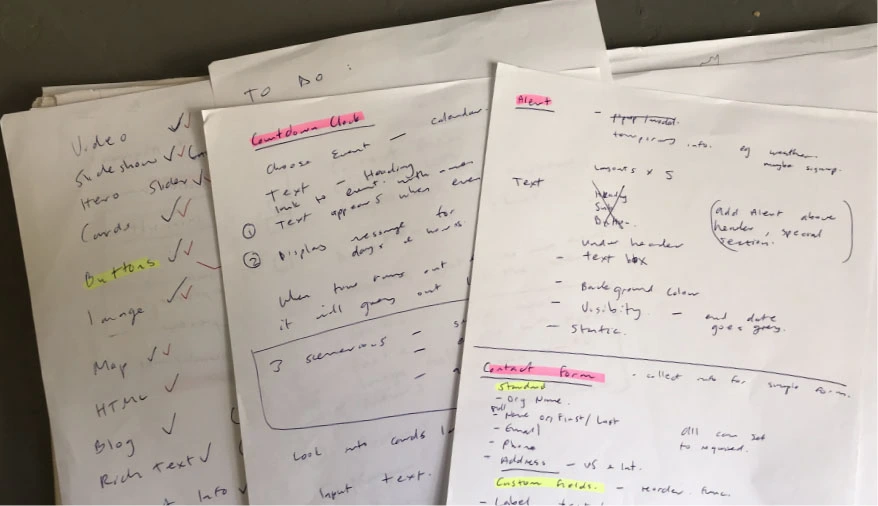 TO DO :
Video
Slideshow
Hero Slider
Cards
Buttons
Image
Map
HTML
Blog
Rich Text
Info
Countdown Clock
Choose Event – calendar
Text – Heading
link to event. with
① Text appears when even
② Display message for
days & hours.
When time runs out
it will grey out
3 scenerious –
Look into cards
Input text.
Alert
temporary info. eg weather.
maybe signup.
Layouts x 5
Text
Heading
Button
(add Alert above
header, special
section.)
under header
– text box
– Background Colour
– Visibility. – end date
goes grey.
– Static.
Contact Form - collect info for simple form.
Standard
– Org Name.
Full
– Name or First/Last
– Email
– Phone
all can set
to required.
– Address – US & Int.
Custom fields. – reorder func.
– Label